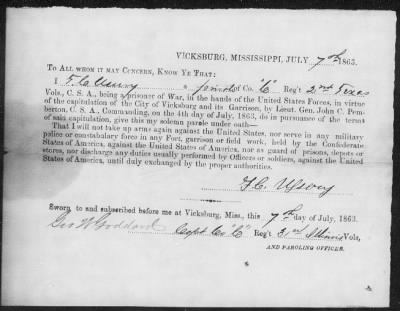 VICKSBURG, MISSISSIPPI, JULY 7th 1863.
TO ALL WHOM IT MAY CONCERN, KNOW YE THAT:
I F. C. Usery a of Co. "C" Reg't 2nd Texas
Vols., C. S. A., being a prisoner of War, in the hands of the United States Forces, in virtue
of the capitulation of the City of Vicksburg and its Garrison, by Lieut. Gen. John C. Pem-
berton, C. S. A., Commanding, on the 4th day of July, 1863, do in pursuance of the terms
of said capitulation, give this my solemn parole under oath—
That I will not take up arms again against the United States, nor serve in any military
police or constabulary force in any Fort, garrison or field work, held by the Confederate
States of America, against the United States of America, nor as guard of prisons, depots or
stores, nor discharge any duties usually performed by Officers or soldiers, against the United
States of America, until duly exchanged by the proper authorities.
F. C. Usery
Sworn to and subscribed before me at Vicksburg, Miss., this 7th day of July, 1863.
Geo W Goddard Capt Co "C" Reg't 31st Illinois Vols,
AND PAROLING OFFICER.